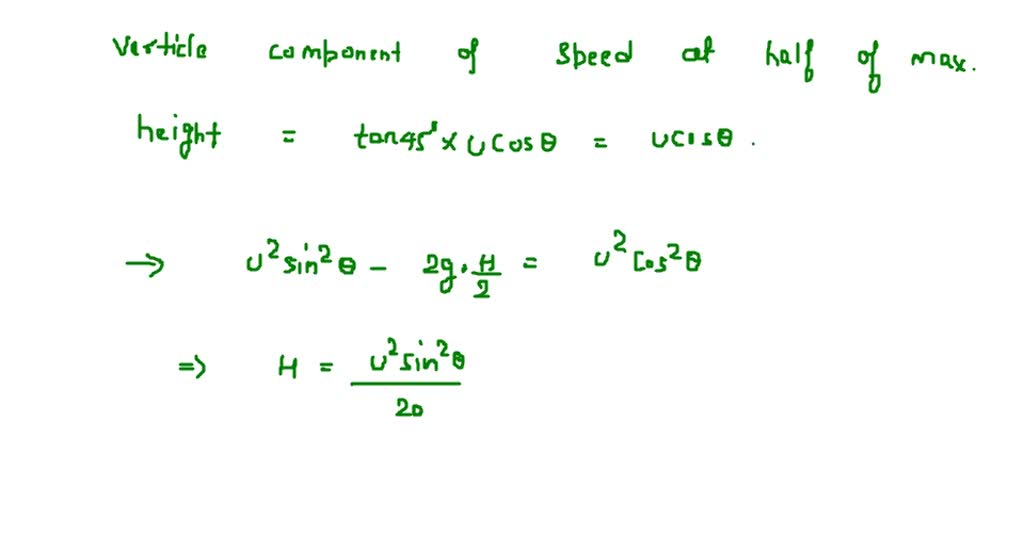 verticle component of speed at half of max.
height = tan45° × u cosθ = u cosθ .
→ u² sin² θ - 2g . H/2 = u² cos² θ
⇒ H = u² sin² θ / 20